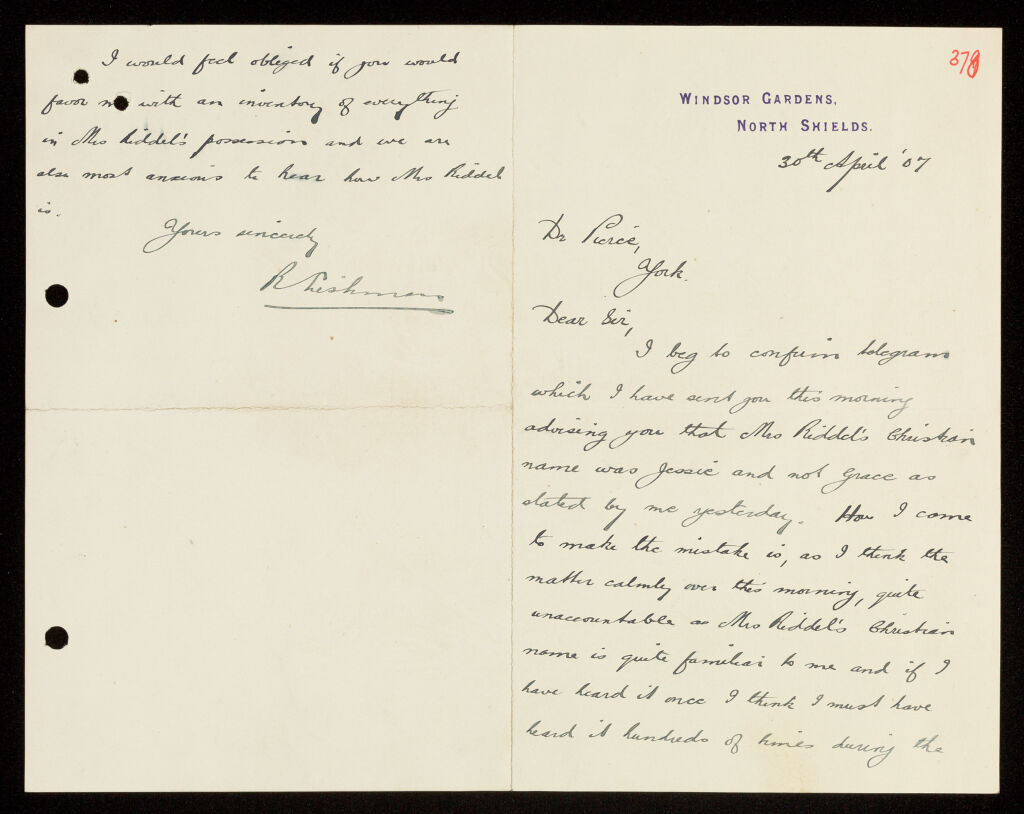 I would feel obliged if you would
favor me with an inventory of everything
in Mrs Riddel's possession and we are
also most anxious to hear how Mrs Riddel
is.
Yours sincerely
378
WINDSOR GARDENS,
NORTH SHIELDS.
30th April '07
Dr Pierce,
York.
Dear Sir,
I beg to confirm telegram
which I have sent you this morning
advising you that Mrs Riddel's Christian
name was Jessie and not Grace as
stated by me yesterday. How I came
to make the mistake is, as I think the
matter calmly over this morning, quite
unaccountable as Mrs Riddel's Christian
name is quite familiar to me and if I
have heard it once I think I must have
heard it hundreds of times during the